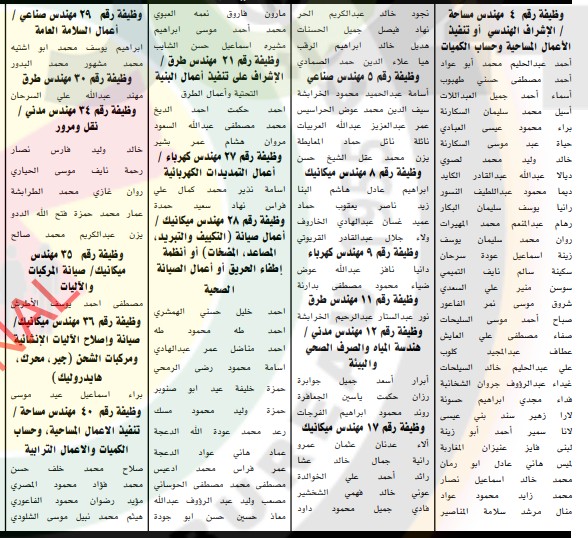 وظيفة رقم ٤ مهندس مساحة
/ الإشراف الهندسي أو تنفيذ
الأعمال المساحية وحساب الكميات
أحمد عبدالحليم محمد أبو عواد
أحمد مصطفى حسني طهبوب
أسماء أحمد جميل العبداللات
أسيل محمد سليمان السكارنة
براء محمود عيسى العبادي
حياة عيد موسى السكارنة
خالد وليد محمد لصوي
ديالا عبدالله عبدالقادر الكايد
ديما محمود عبداللطيف النسور
رانيا يوسف سليمان البكار
رهام عبدالمنعم محمد المهيرات
روان محمد سليمان يوسف
زينة اسماعيل عودة سرحان
سكينة سالم نايف التميمي
سوسن منير علي السعدي
شروق موسى نمر الفاعور
صباح أحمد موسى السليحات
صفاء مصطفى علي العايش
عطاف عبدالمجيد كلوب
علي عبدالحليم خالد السليحات
غيداء عبدالرؤوف جروان الشخانبة
فداء مجدي ابراهيم حسونة
لارا زهير سند بني عيسى
لانا سمير أحمد أبو زينة
لبنى فايز عنيزان المغاربة
لميس هاني عادل ابو رمان
محمد خالد اسماعيل نصار
محمد زايد محمود عواد
منال مرشد سلامة المناصير
نجود خالد عبدالكريم الحر
نهاد فيصل جميل الحسنات
هديل خالد ابراهيم الرقب
هيا علاء الدين حمد الصمادي
وظيفة رقم ٥ مهندس صناعي
أسامة عبدالحميد محمود الخرابشة
سيف الدين محمد عوض الحراسيس
عمر عبدالعزيز عبدالله العربيات
نائلة نائل حماد المعايطة
يزن محمد عقل الشيخ حسن
وظيفة رقم ٨ مهندس ميكانيك
ابراهيم عادل هاشم البنا
زيد ناصر يعقوب حماد
عميد غسان عبدالهادي الخاروف
ولاء جلال عبدالقادر القريوتي
وظيفة رقم ٩ مهندس كهرباء
دانيا نافز عبدالله عوض
ضياء محمود مصطفى بدارنة
وظيفة رقم ١١ مهندس طرق
نور عبدالستار عبدالرحيم الخرابشة
وظيفة رقم ١٢ مهندس مدني /
هندسة المياه والصرف الصحي
والبيئة
أبرار أسعد جميل جوابرة
رزان حكمت ياسين الجعافرة
روند محمود ابراهيم الفرجات
وظيفة رقم ١٧ مهندس ميكانيك
آلاء عدنان عثمان عمرو
رانية جمال خالد عشا
رائد أحمد علي الخوالدة
عوني خالد فهمي الخشخشير
فادي جميل محمود داود
مارون فاروق نعمه العبوي
محمد أحمد موسى ابراهيم
مشيره اسماعيل حسن الشايب
وظيفة رقم ٢١ مهندس طرق /
الإشراف على تنفيذ أعمال البنية
التحتية وأعمال الطرق
احمد حكمت احمد الديخ
محمد مصطفى عبدالله السعود
مروان هشام عمر بشير
وظيفة رقم ٢٧ مهندس كهرباء /
أعمال التمديدات الكهربائية
اسامة نذير محمد كمال علي
فراس نهاد سعيد حمدة
وظيفة رقم ٢٨ مهندس ميكانيك /
أعمال صيانة (التكييف والتبريد،
المصاعد، المضخات) أو أنظمة
إطفاء الحريق أو أعمال الصيانة
الصحية
احمد خليل حسني الهمشري
احمد طه محمود طه
احمد مناضل عمر عبدالهادي
اسامة محمود رضى الرمحي
حمزة خليفة عيد ابو صنوبر
حمزة وليد محمود مسك
رعد محمد عودة الله الدعجة
عماد هاني عواد الدعجة
عمر فراس محمد ادعيس
مصطفى محمد مصطفى الحوساني
مصعب وليد عبد الرؤوف عبدالله
معاذ حسين حسن ابو جودة
وظيفة رقم ٢٩ مهندس صناعي /
أعمال السلامة العامة
ابراهيم يوسف محمد ابو اشتيه
محمد مشهور محمد البدور
وظيفة رقم ٣٠ مهندس طرق
مهند عبدالله علي السرحان
وظيفة رقم ٣٤ مهندس مدني /
نقل ومرور
خالد وليد فارس نصار
رحمة نايف موسى الحياري
روان غازي محمد الطرابشة
عمار محمد حمزة فتح الله الددو
يزن عبدالكريم محمد صالح
وظيفة رقم ٣٥ مهندس
ميكانيك/ صيانة المركبات
والآليات
مصطفى احمد يوسف الأطرش
وظيفة رقم ٣٦ مهندس ميكانيك/
صيانة وإصلاح الآليات الإنشائية
ومركبات الشحن (جير، محرك،
هايدروليك)
براء اسماعيل عيد موسى
وظيفة رقم ٤٠ مهندس مساحة /
تنفيذ الاعمال المساحية، وحساب
الكميات والاعمال الترابية
صلاح محمد خلف حسن
محمد فؤاد محمود المصري
مؤيد رضوان محمود الفاعوري
هيثم محمد نبيل موسى الشلودي